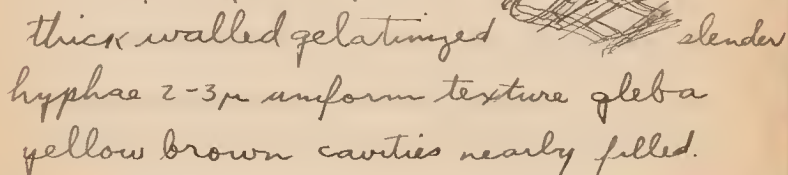 thick walled gelatinized slender
hyphae 2-3µ uniform texture gleba
yellow brown cavities nearly filled.